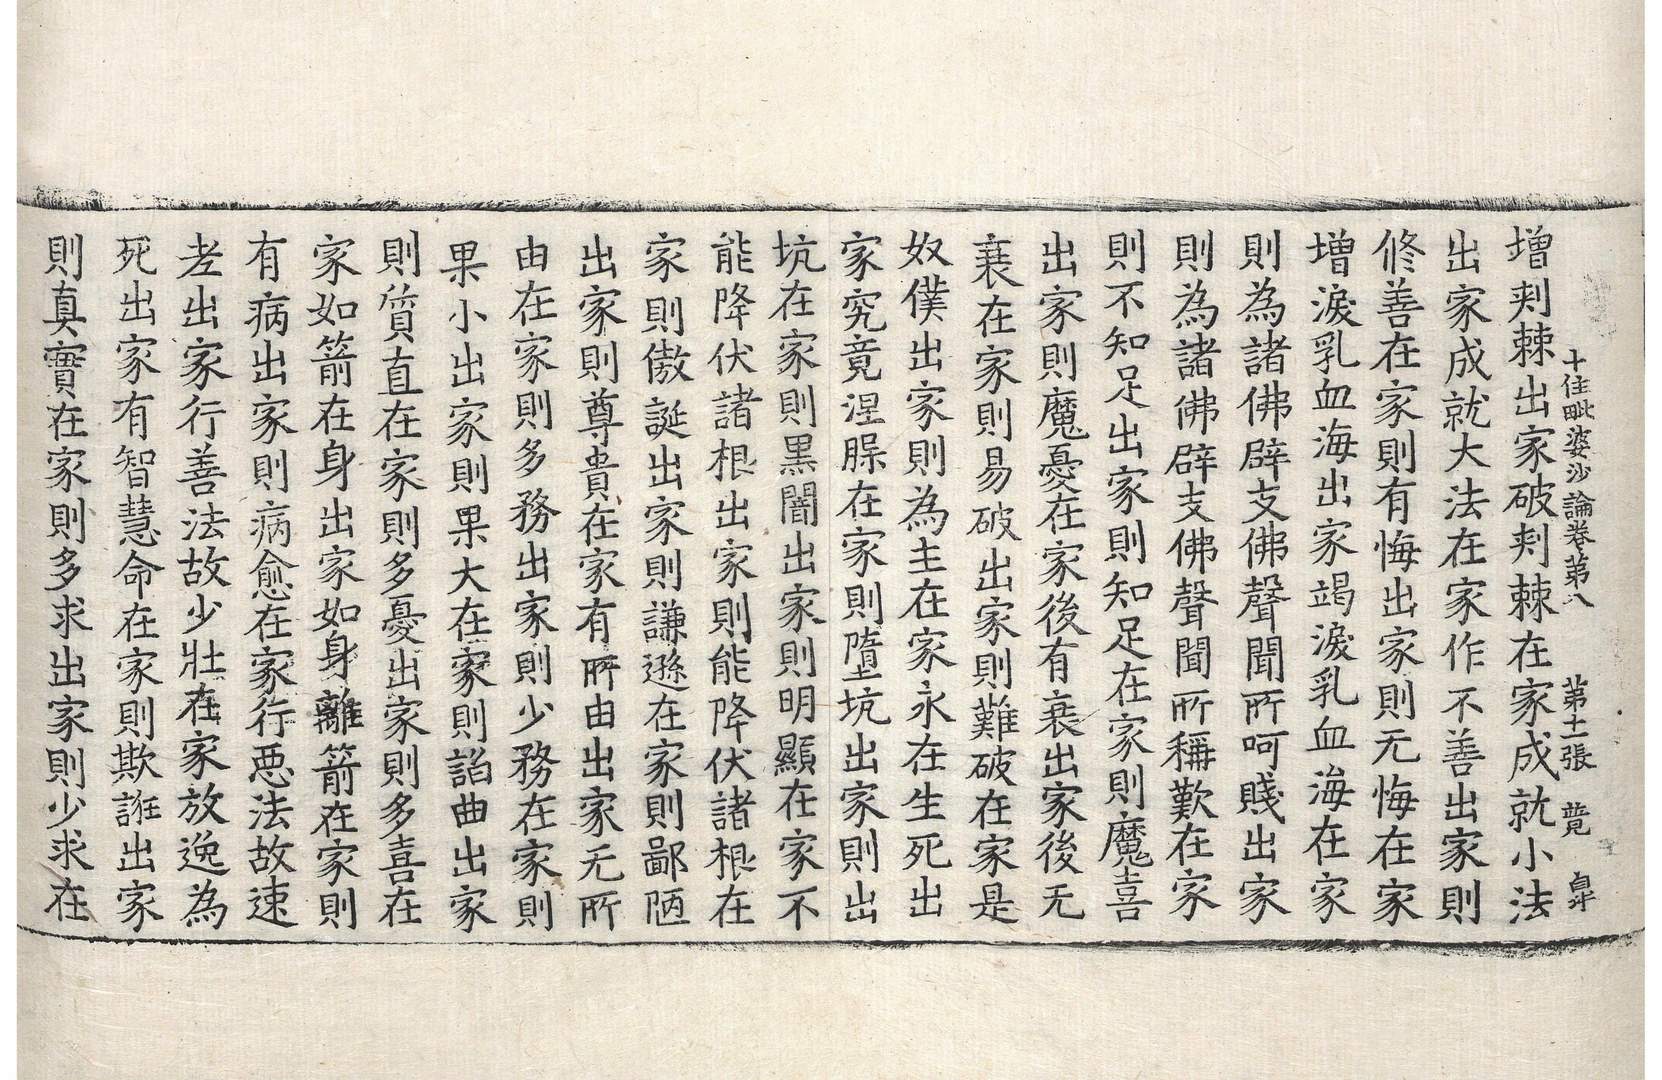 十住毗婆沙論卷第八 第十一張
增刾棘出家破刾棘在家成就小法
出家成就大法在家作不善出家則
修善在家則有悔出家則无悔在家
增淚乳血海出家竭淚乳血海在家
則為諸佛辟支佛聲聞所呵賤出家
則為諸佛辟支佛聲聞所稱歎在家
則不知足出家則知足在家則魔喜
出家則魔憂在家後有衰出家後无
衰在家則易破出家則難破在家是
奴僕出家則為主在家永在生死出
家究竟涅槃在家則墮坑出家則出
坑在家則黑闇出家則明顯在家不
能降伏諸根出家則能降伏諸根在
家則傲誕出家則謙遜在家則鄙陋
出家則尊貴在家有所由出家无所
由在家則多務出家則少務在家則
果小出家則果大在家則諂曲出家
則質直在家則多憂出家則多喜在
家如箭在身出家如身離箭在家則
有病出家則病愈在家行惡法故速
老出家行善法故少壯在家放逸為
死出家有智慧命在家則欺誑出家
則真實在家則多求出家則少求在